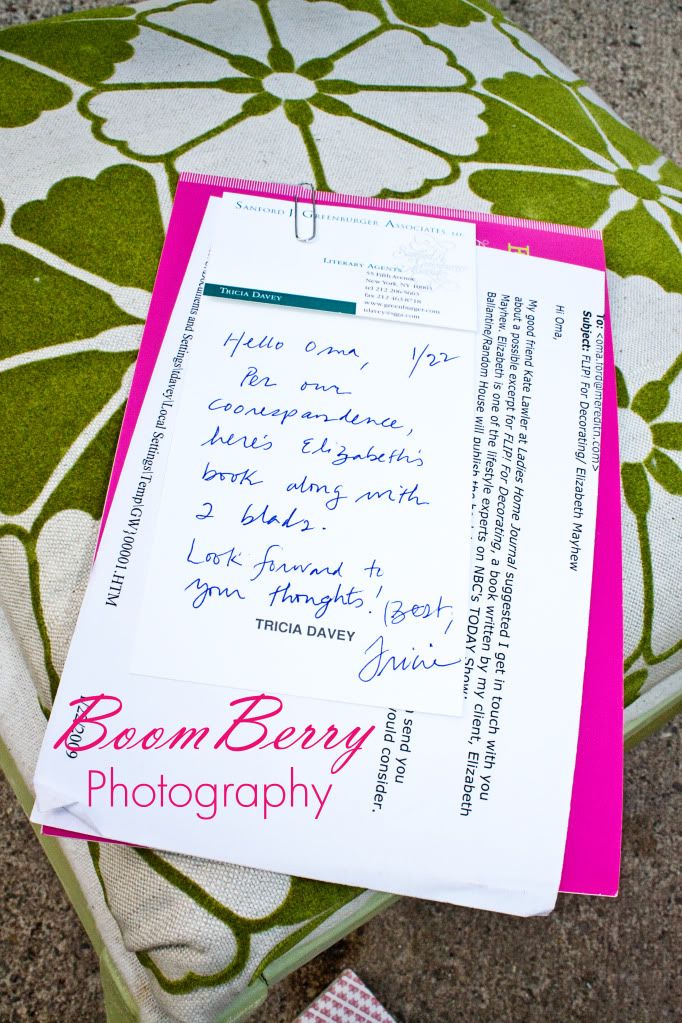 SANFORD J. GREENBURGER ASSOCIATES
LITERARY AGENTS
55 Fifth Avenue
New York, NY 10003
tel 212 206-5663
fax 212 463-8718
www.greenburger.com
tdavey@sjga.com
TRICIA DAVEY
Hello Oma, 1/22
Per our
coorespandence,
here's Elizabeth's
book along with
2 blads.
Look forward to
your thoughts!
Best,
Tricia
TRICIA DAVEY
To: <oma.ford@meredith.com>
Subject: FLIP! For Decorating/ Elizabeth Mayhew
Hi Oma,
My good friend Kate Lawler at Ladies Home Journal suggested I get in touch with you
about a possible excerpt for FLIP! For Decorating, a book written by my client, Elizabeth
Mayhew. Elizabeth is one of the lifestyle experts on NBC's TODAY Show;
Ballantine/Random House will publish the
send you
would consider.
ocuments and Settings\tdavey\Local Settings\Temp\GW}00001.HTM
2009
BoomBerry
Photography